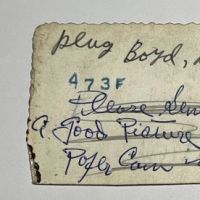 Plug Boyd,
473F
Please Sen
A. Good Picture